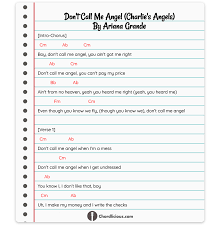 Don't Call Me Angel (Charlie's Angels)
By Ariana Grande
[Intro-Chorus]
Cm Ab Cm
Boy, don't call me angel, you ain't got me right
Ab Cm
Don't call me angel, you can't pay my price
Bb Ab Cm
Ain't from no heaven, yeah you heard me right (yeah, you heard me)
Fm Cm Cm
Even though you know we fly, (though you know we), don't call me angel
[Verse 1]
Cm
Don't call me angel when I'm a mess
Cm
Don't call me angel when I get undressed
Ab
You know I, I don't like that, boy
Cm Bb
Uh, I make my money and I write the checks
Chordlicious.com